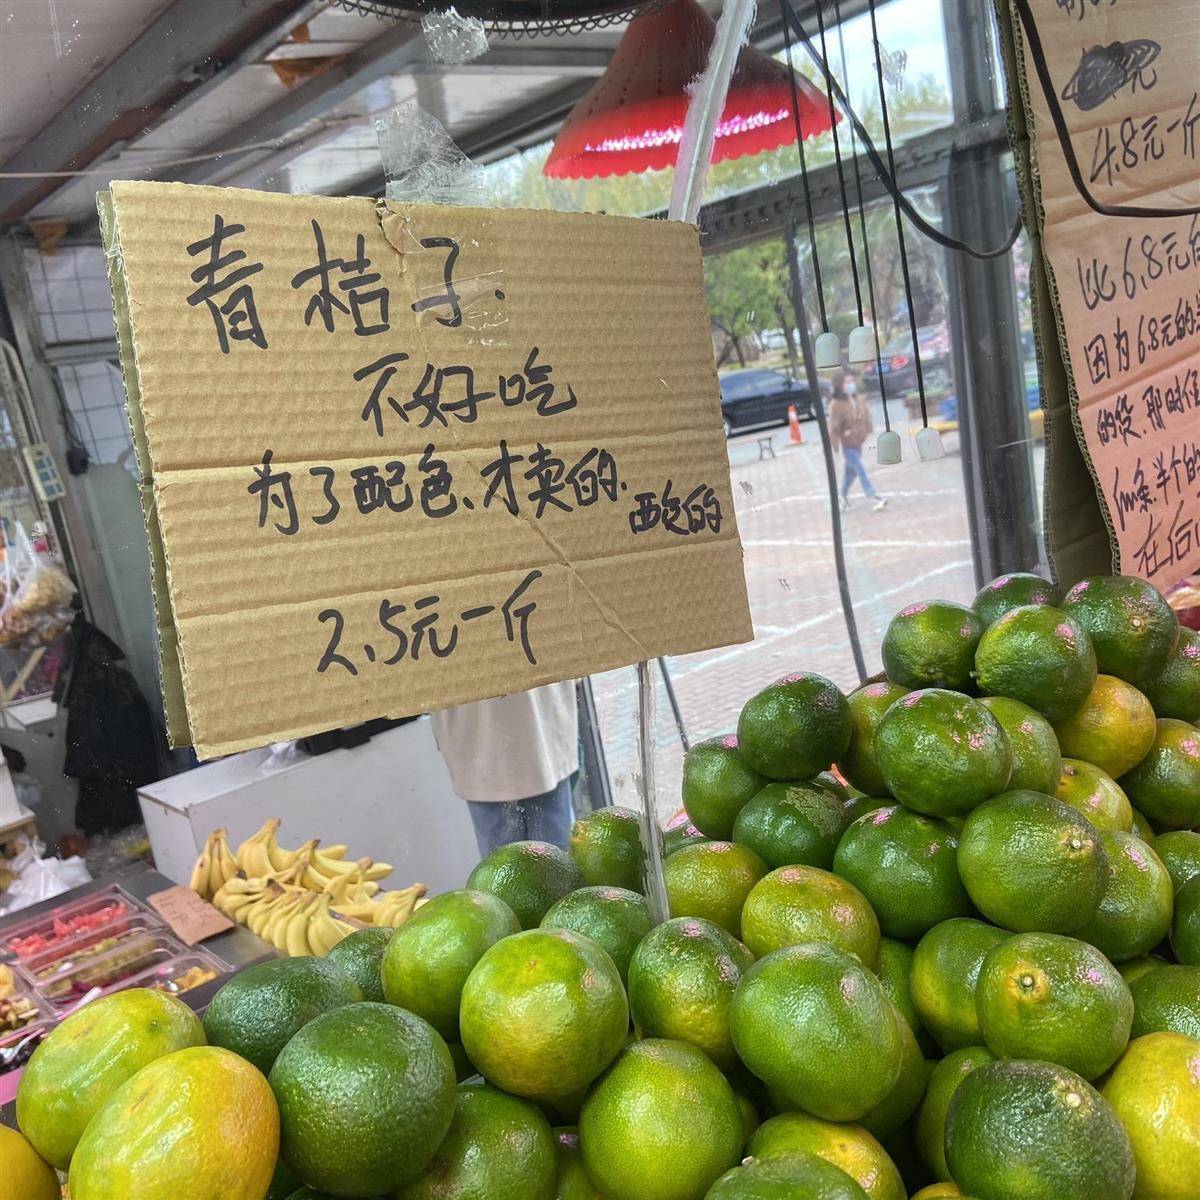 青桔子.
不好吃
为了配色、才卖的.
酸的
2.5元一斤
元
4.8元一斤
比6.8元
因为6.8元的
的货.那时候
半个的
在后